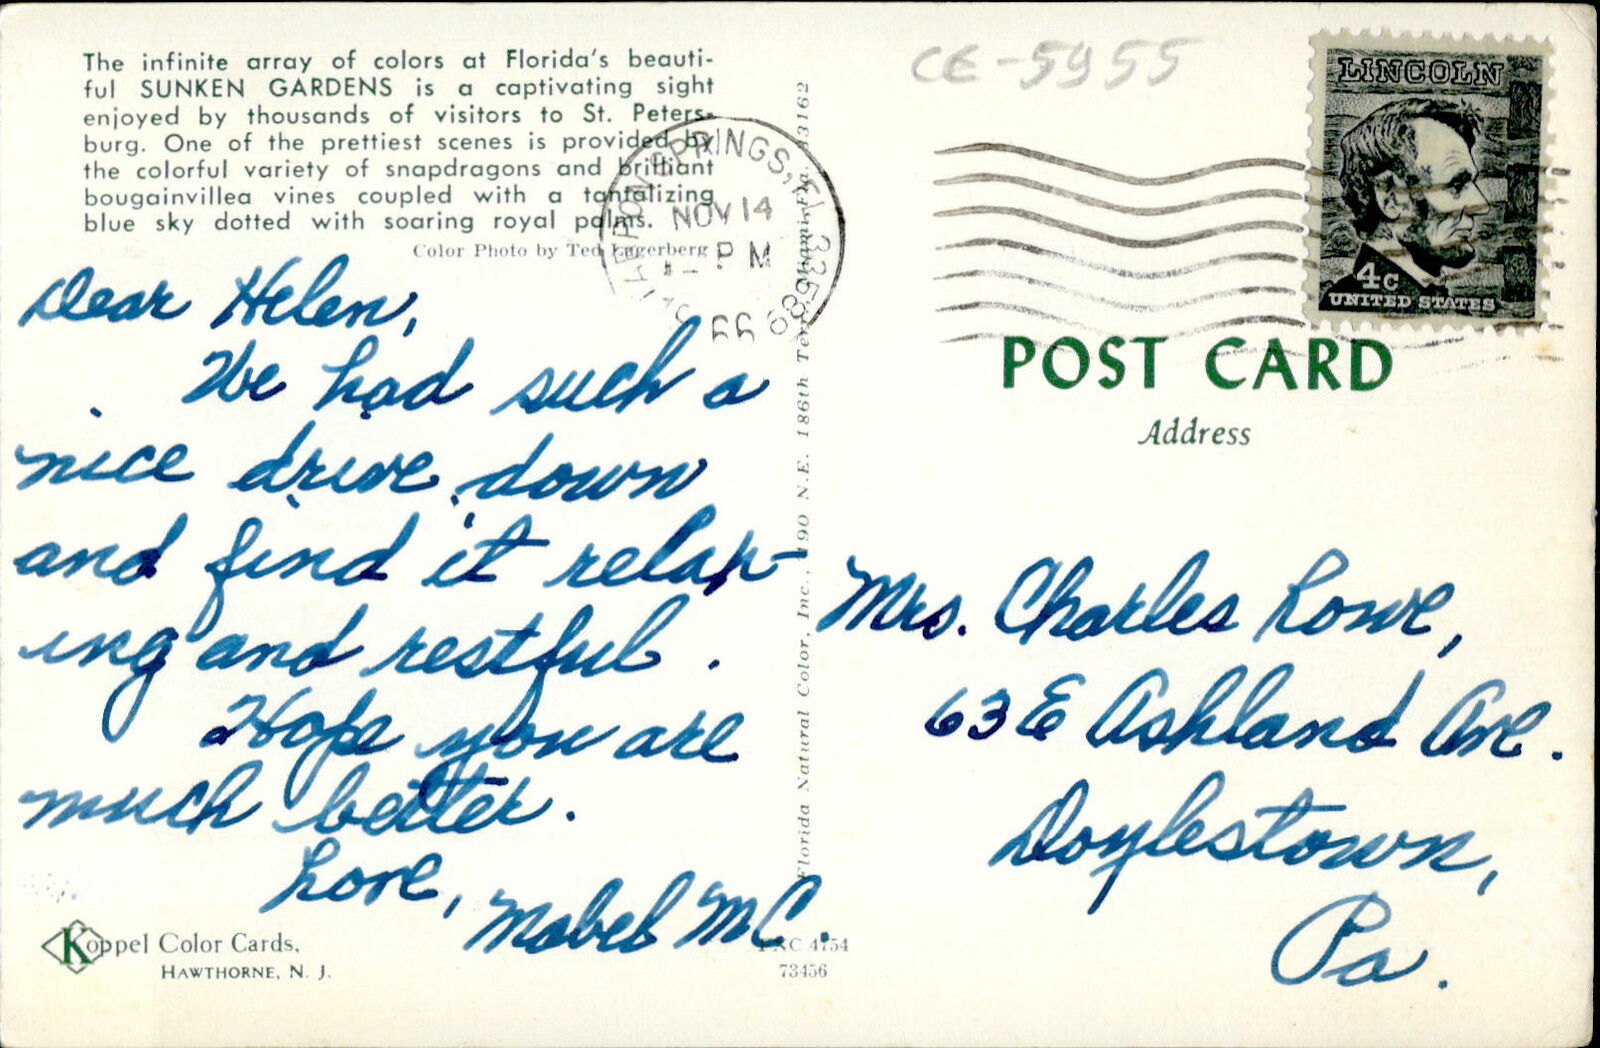 The infinite array of colors at Florida's beauti-
ful SUNKEN GARDENS is a captivating sight
enjoyed by thousands of visitors to St. Peters-
burg. One of the prettiest scenes is provided by
the colorful variety of snapdragons and brilliant
bougainvillea vines coupled with a tantalizing
blue sky dotted with soaring royal palms.
Color Photo by Ted Lagerberg
Dear Helen,
We had such a
nice drive down
and find it relax-
ing and restful.
Hope you are
much better.
Love,
Mabel MC.
Koppel Color Cards,
HAWTHORNE, N. J.
4754
73456
Florida Natural Color, Inc., 190 N.E. 186th Terr., Miami, Fla. 33162
SPRINGS, FL 33589
NOV 14
PM
66
CE-5955
LINCOLN
4c
UNITED STATES
POST CARD
Address
Mrs. Charles Lowe,
63 E Ashland Ave.
Doylestown,
Pa.